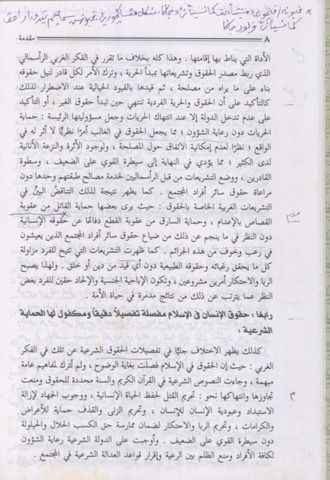 ٨ ــــــــــــــــــ مقدمة
الأداة التي يناط بها إقامتها . وهذا كله بخلاف ما تقرر في الفكر الغربي الرأسمالي
الذي ربط مصدر الحقوق وتشريعاتها بمبدأ الحرية ، وترك الأمر لكل قادر لنيل حقوقه
بناء على ما يراه من مصلحة ، ثم قيدها بالقيود الحيالية عند الاضطرار لذلك
كالتأكيد على أن الحقوق والحرية الفردية تنتهي حين تبدأ حقوق الغير ، والتأكيد
على عدم تدخل الدولة إلا عند انتهاك الحريات وجعل مسؤوليتها الرئيسة : حماية
الحريات دون رعاية الشؤون ؛ مما يجعل الحقوق في الغالب أمرًا نظريًّا لا أثر له في
الواقع ؛ نظرًا لعدم إمكانية الاتفاق حول المصلحة ، ولوجود الأثرة والنزعة الأنانية
لدى الكثير ؛ مما يؤدي في النهاية إلى سيطرة القوي على الضعيف ، وتسلط
القادرين ، ووضع التشريعات من قبل الرأسماليين لخدمة مصالح طبقتهم وحدها دون
مراعاة حقوق سائر أفراد المجتمع . كما يظهر نتيجة لذلك التناقض البيِّن في
التشريعات الغربية الخاصة بالحقوق : حيث يرى بعضها حماية القاتل من عقوبة
القصاص بالإعدام ، وحماية السارق من عقوبة القطع دفاعًا عن حقوقه الإنسانية
دون النظر في ما ينجم عن ذلك من ضياع حقوق سائر أفراد المجتمع الذين يعيشون
في رعب وخوف من هذه الجرائم . كما ظهرت التشريعات التي تتيح للفرد مزاولة
كل ما يحقق رغباته وحقوقه الطبيعية دون أي قيد من دين أو خلق . ولهذا يصبح
الربا والاحتكار أمرين مشروعين ، وتكون الإباحية الجنسية والإلحاد حقين للفرد بغض
النظر عما يترتب عن ذلك من نتائج مدمرة في حياة الأمة .
رابعًا : حقوق الإنسان في الإسلام مفصلة تفصيلًا دقيقًا ومكفول لها الحماية
الشرعية :
كذلك يظهر الاختلاف جليًّا في تفصيلات الحقوق الشرعية عن تلك في الفكر
الغربي : حيث إن الحقوق في الإسلام فصلت بغاية الوضوح ، ولم تُترك لمفاهيم عامة
مبهمة ، وجاءت النصوص الشرعية في القرآن الكريم والسنة محددة للحقوق ومنعت
تجاوزها وانتهاكها نحو : تحريم القتل لحفظ الحياة الإنسانية ، ووجوب الجهاد لإزالة
الاستبداد وعبودية الإنسان للإنسان ، وتحريم الزنى والقذف حماية للأعراض
والكرامات ، وتحريم الربا والاحتكار لضمان ممارسة حق الكسب الحلال والحيلولة
دون سيطرة القوي على الضعيف . وأوجبت على الدولة الشرعية رعاية الشؤون
لكافة الأفراد ومنع الظلم بين الرعية وإقرار قواعد العدالة الشرعية في المجتمع .